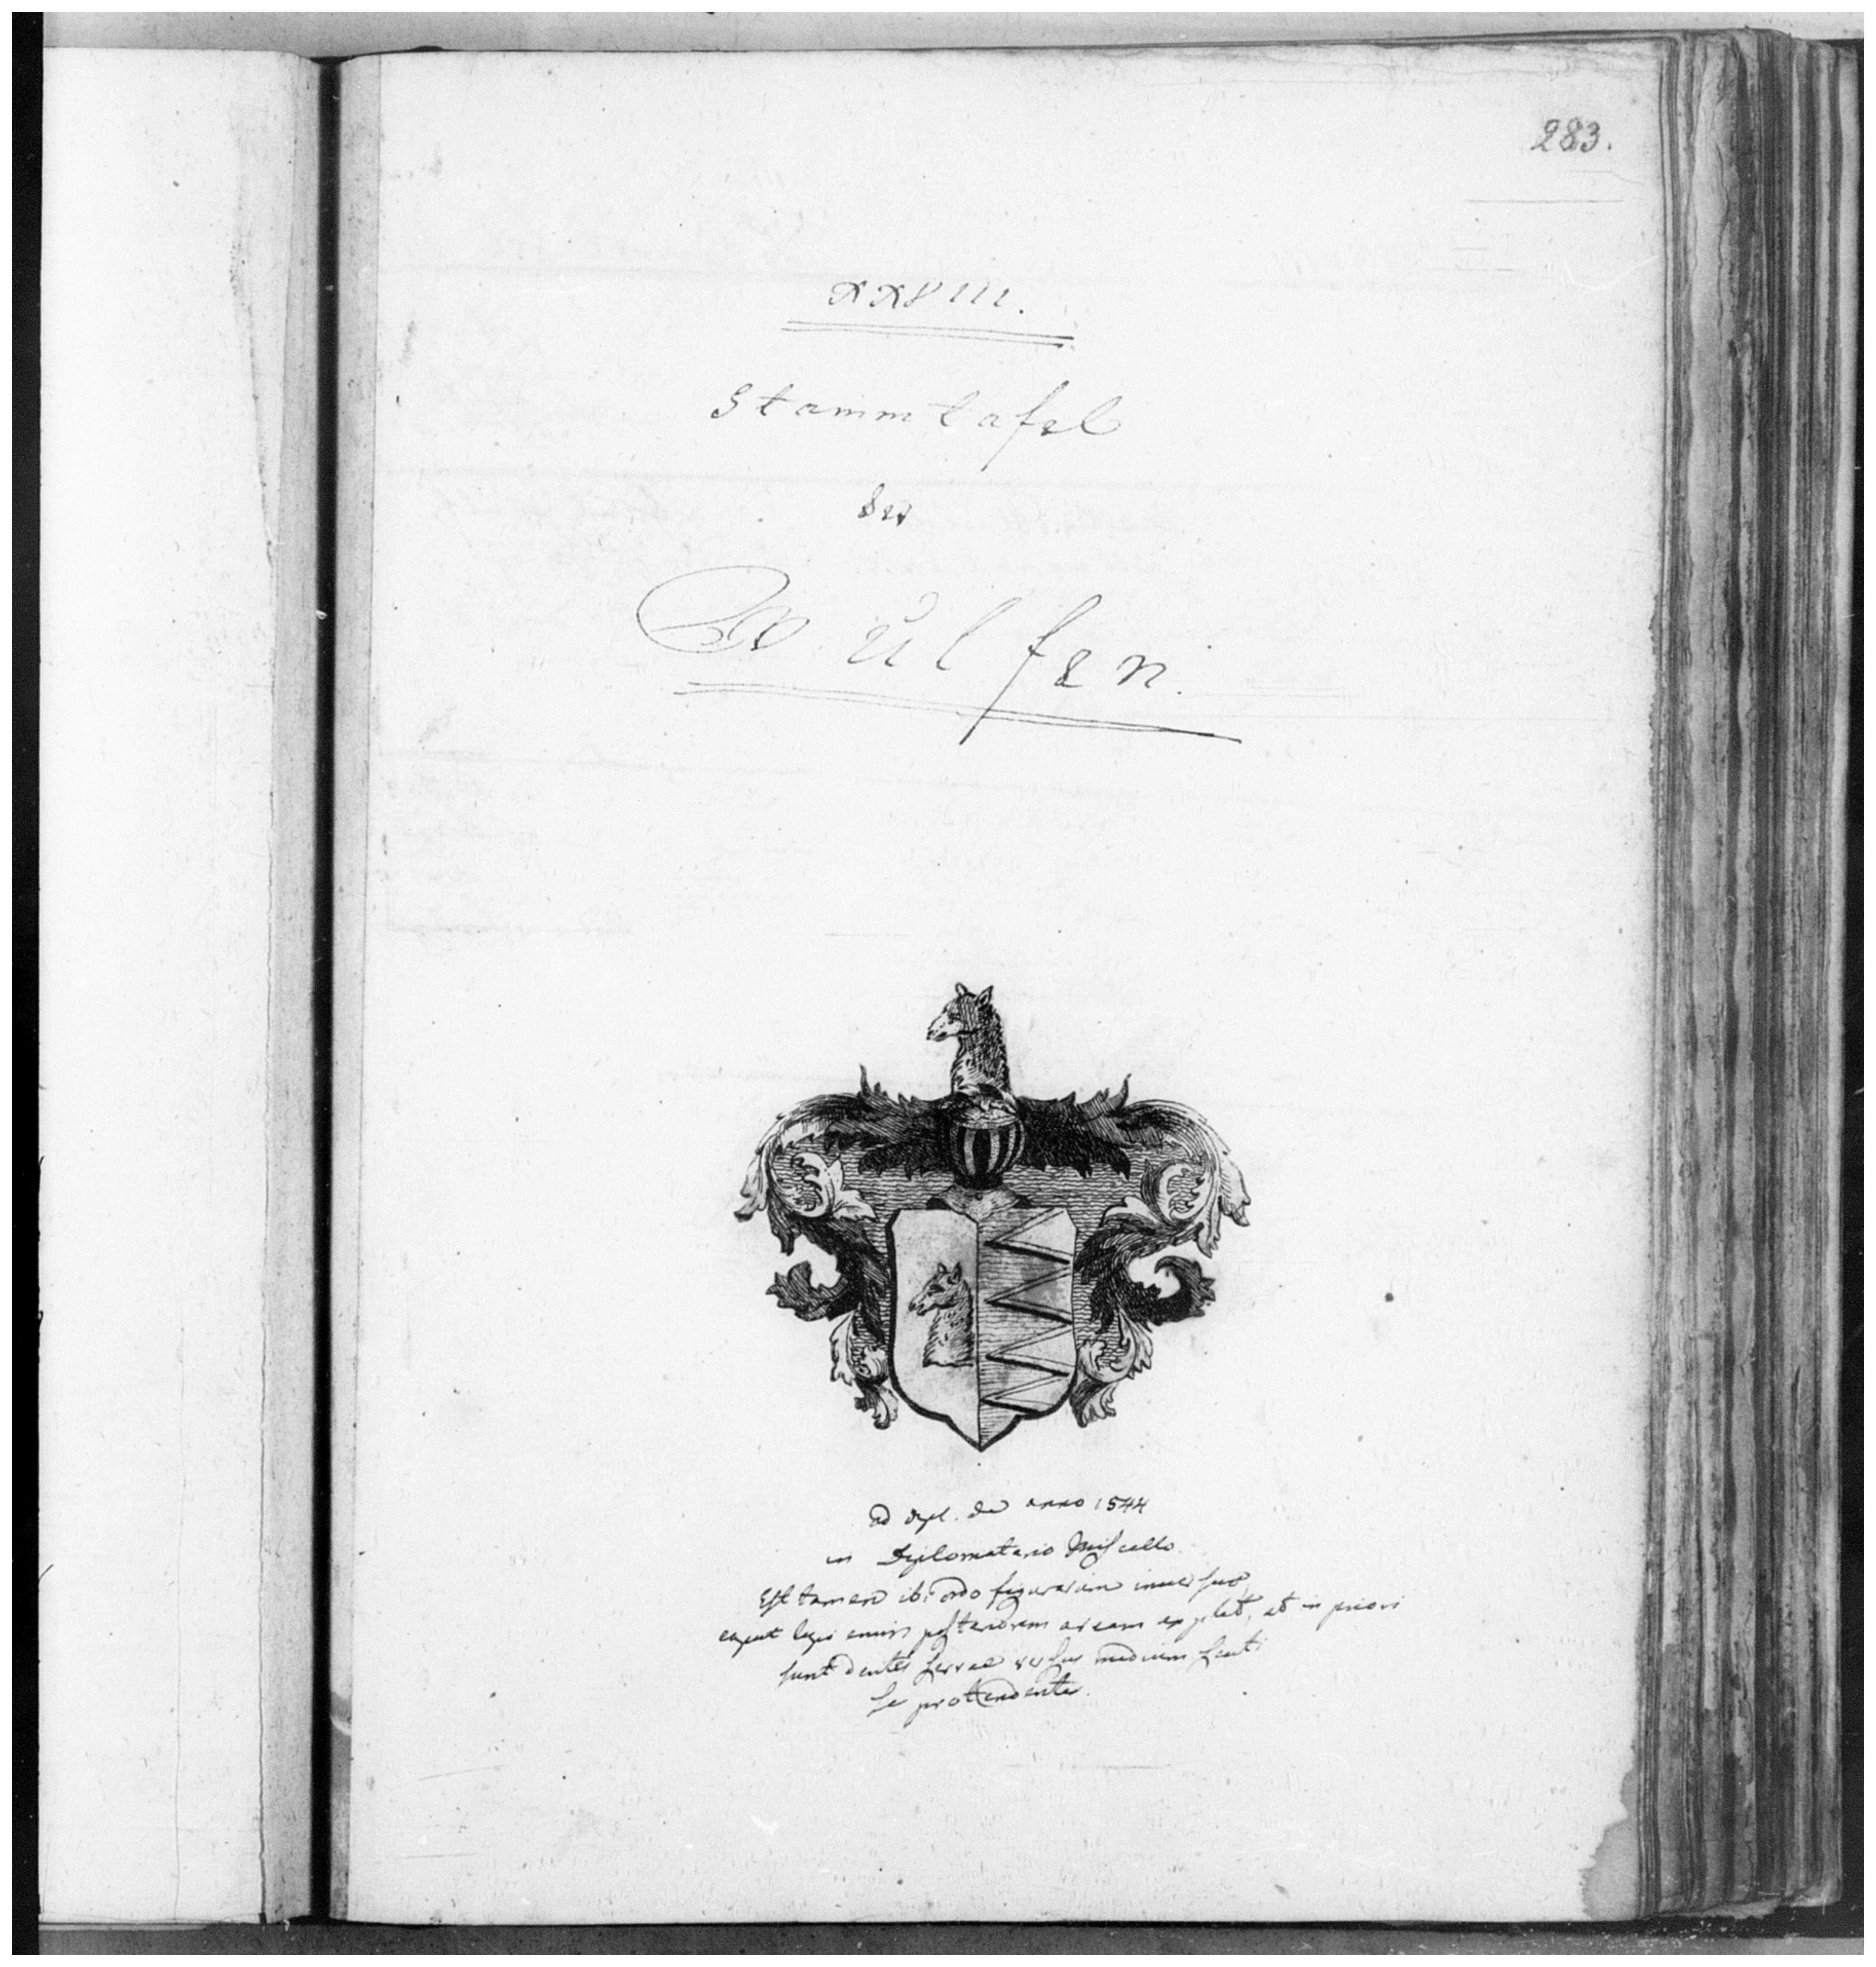 283.
XXVIII.
Stammtafel
der
Wulfen.
ad dipl. de anno 1544
in Diplomatario Miscello.
Est tamen ibi ordo figurarum inversus,
caput lupi enim posteriorem aream explet, et in priori
sunt dentes serrae versus medium scuti
se protendentes.